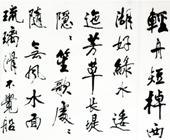 輕舟短棹西
湖好綠水逶
迤芳草長堤
隱々笙歌處々
隨無風水面
琉璃滑不覺船